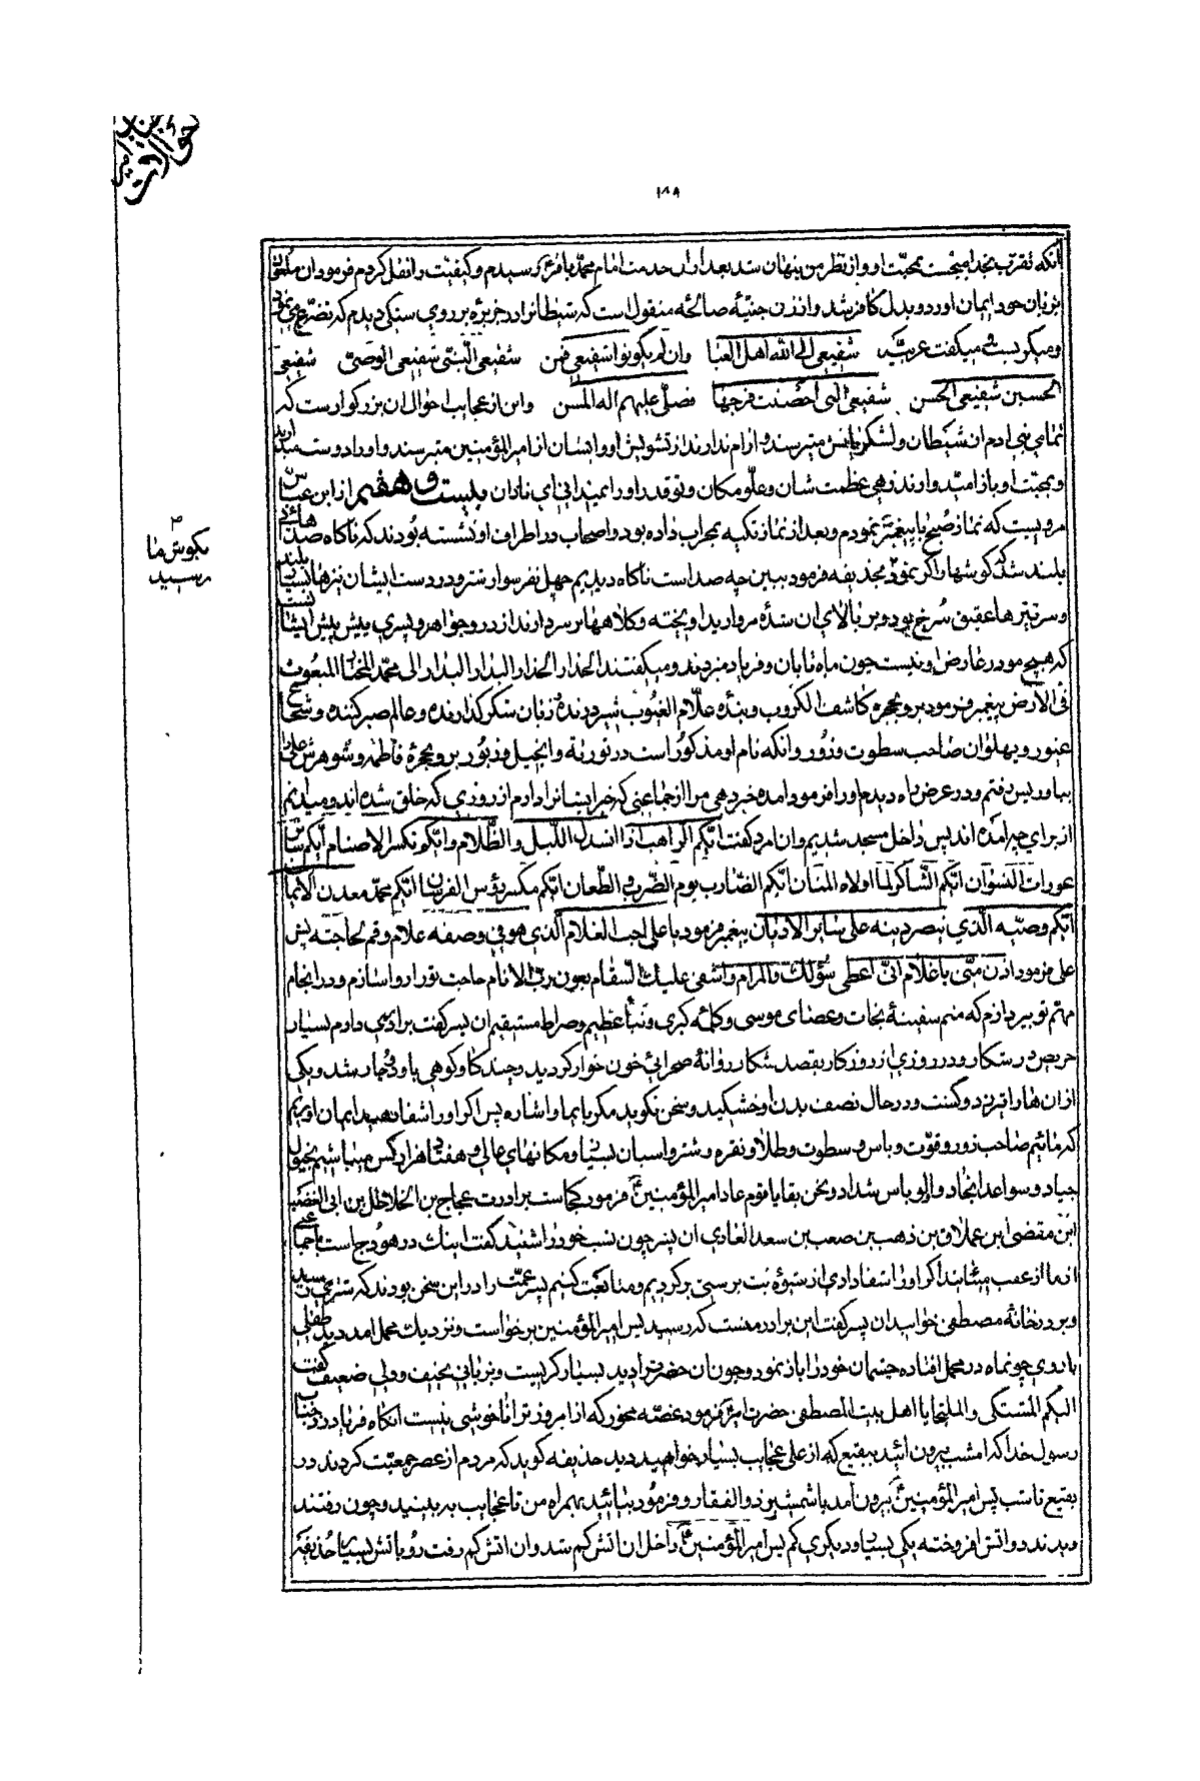 ۱۸۸
آنکه تقرب بخدا میجست بمحبت او و از نظر من پنهان شد بعد از ان خدمت امام محمد باقر رسیدم و کیفیت را نقل کردم فرمود ان ملعون
بزبان خود ایمان اورد و بدل کافر شد و از زن جنیهٔ صالحه منقول است که شیطانرا در جزیره بر روی سنکی دیدم که تضرع می نمود
و میکریست و میکفت عربیة شفیعی الی الله اهل العبا وان لم یکونوا شفیعی فمن شفیعی النبی شفیعی الوصی شفیعی
الحسین شفیعی الحسن شفیعی التی احصنت فرجها فصلی علیهم اله المنن و این از عجایب احوال ان بزرکوار است که
تمامی بنی ادم از شیطان و لشکریانش میترسند و ارام ندارند از تشویش او و ایشان از امیر المؤمنین میترسند و او را دوست میدارند
و بمحبت او باز امیدوارند زهی عظمت شان و علو مکان و تو قدر او را نمیدانی ای نادان بیست و هفتم از ابن عباس
مرویست که نماز صبح با پیغمبر نمودم و بعد از نماز تکیه بمحراب داده بود و اصحاب در اطراف او نشسته بودند که ناکاه صداهای
بلند شد که کوشها را کر نمود بحذیفه فرمود ببین چه صداست ناکاه دیدیم چهل نفر سوار شتر و در دست ایشان نیزهای بلند
و سر نیزها عقیق سرخ بود و بر بالای ان شدهٔ مروارید اویخته و کلاهها بر سر دارند از در و جواهر و پسری پیش پیش ایشان
که هیچ مو در عارض او نیست چون ماه تابان و فریاد میزدند و میکفتند الحذار الحذار البدار البدار الی محمد المختار المبعوث
فی الارض پیغمبر فرمود برو بحجره کاشف الکروب و بنده علام الغیوب شیر درنده و زبان شکر کذارنده و عالم صبر کننده و شجاع
غیور و پهلوان صاحب سطوت و زور و انکه نام او مذکور است در توریة و انجیل و زبور برو بحجرهٔ فاطمه و شوهرش علی را
بیاور پس رفتم و در عرض راه دیدم او را فرمود امده خبر دهی مرا از جماعتی که خبر ایشانرا دارم از روزی که خلق شده اند و میدانم
از برای چه امده اند پس داخل مسجد شدیم و ان امرد کفت ایکم الراهب اذا انسدل اللیل و الظلام و ایکم مکسر الاصنام ایکم ساتر
عورات النسوان ایکم الشاکر لما اولاه المنان ایکم الضارب یوم الضرب و الطعان ایکم مکسر رؤس الفرسان ایکم محمد معدن الایمان
ایکم وصیه الذی نصر دینه علی سایر الادیان پیغمبر فرمود یا علی اجب الغلام الذی هو فی وصفه علام وقم لحاجته پس
علی فرمود ادن منی یا غلام انی اعطی سؤلک و المرام و اشفی علیلک السقام بعون رب الانام حاجت تو را روا سازم و در انجام
مهم تو بپردازم که منم سفینهٔ نجات و عصای موسی و کلمه کبری و نبأ عظیم و صراط مستقیم ان پسر کفت برادری دارم بسیار
حریص در شکار و در روزی از روزکار بقصد شکار روانهٔ صحرائی خون خوار کردید و چند کاو کوهی باو دوچار شد و یکی
از ان ها را تیر زد و کشت و در حال نصف بدن او خشکید و سخن نکوید مکر بایما و اشاره پس اکر او را شفا دهید ایمان اوریم
که مائیم صاحب زور و قوت و باس و سطوت و طلا و نقره و شتر و اسبان بسیار و مکانهای عالی و هفتاد هزار کس میباشیم بخیول
جیاد و سواعد انجاد و اولو باس شداد و نحن بقایا قوم عاد امیر المؤمنین فرمود کجاست برادرت عجاج بن الخلاخل بن ابی الغضب
ابن مقضی ابن عملاق بن ذهب بن صعب بن سعد العادی ان پسر چون نسب خود را شنید کفت اینک در هودج است با جماعتی
از ما از عقب میایند اکر او را شفا دادی از شیوهٔ بت پرستی بر کردیم و متابعت کنیم پسر عمت را در این سخن بودند که شتری رسید
و بر در خانهٔ مصطفی خوابید ان پسر کفت این برادر منست که رسید پس امیر المؤمنین برخواست و نزدیک محمل امد دید طفلی
با روی چو نماه در محمل افتاده چشمان خود را باز نمود و چون ان حضرترا دید بسیار کریست و بزبانی نحیف و دلی ضعیف کفت
الیکم المشتکی والملتجا یا اهل بیت المصطفی حضرت امیر فرمود غصه مخور که از امروز ترا ناخوشی نیست انکاه فریاد زد جناب
رسول خدا که امشب بیرون ائید ببقیع که از علی عجایب بسیار خواهید دید حذیفه کوید که مردم از عصر جمعیت کردند در
بقیع تا شب پس امیر المؤمنین بیرون امد با شمشیر ذو الفقار و فرمود بیائید بهمراه من تا عجایب به بینید و چون رفتند
دیدند دو اتش افروخته یکی بسیار و دیکری کم پس امیر المؤمنین داخل ان اتش کم شد و ان اتش کم رفت رو باتش بسیار حذیفه
بکوش ما
رسید